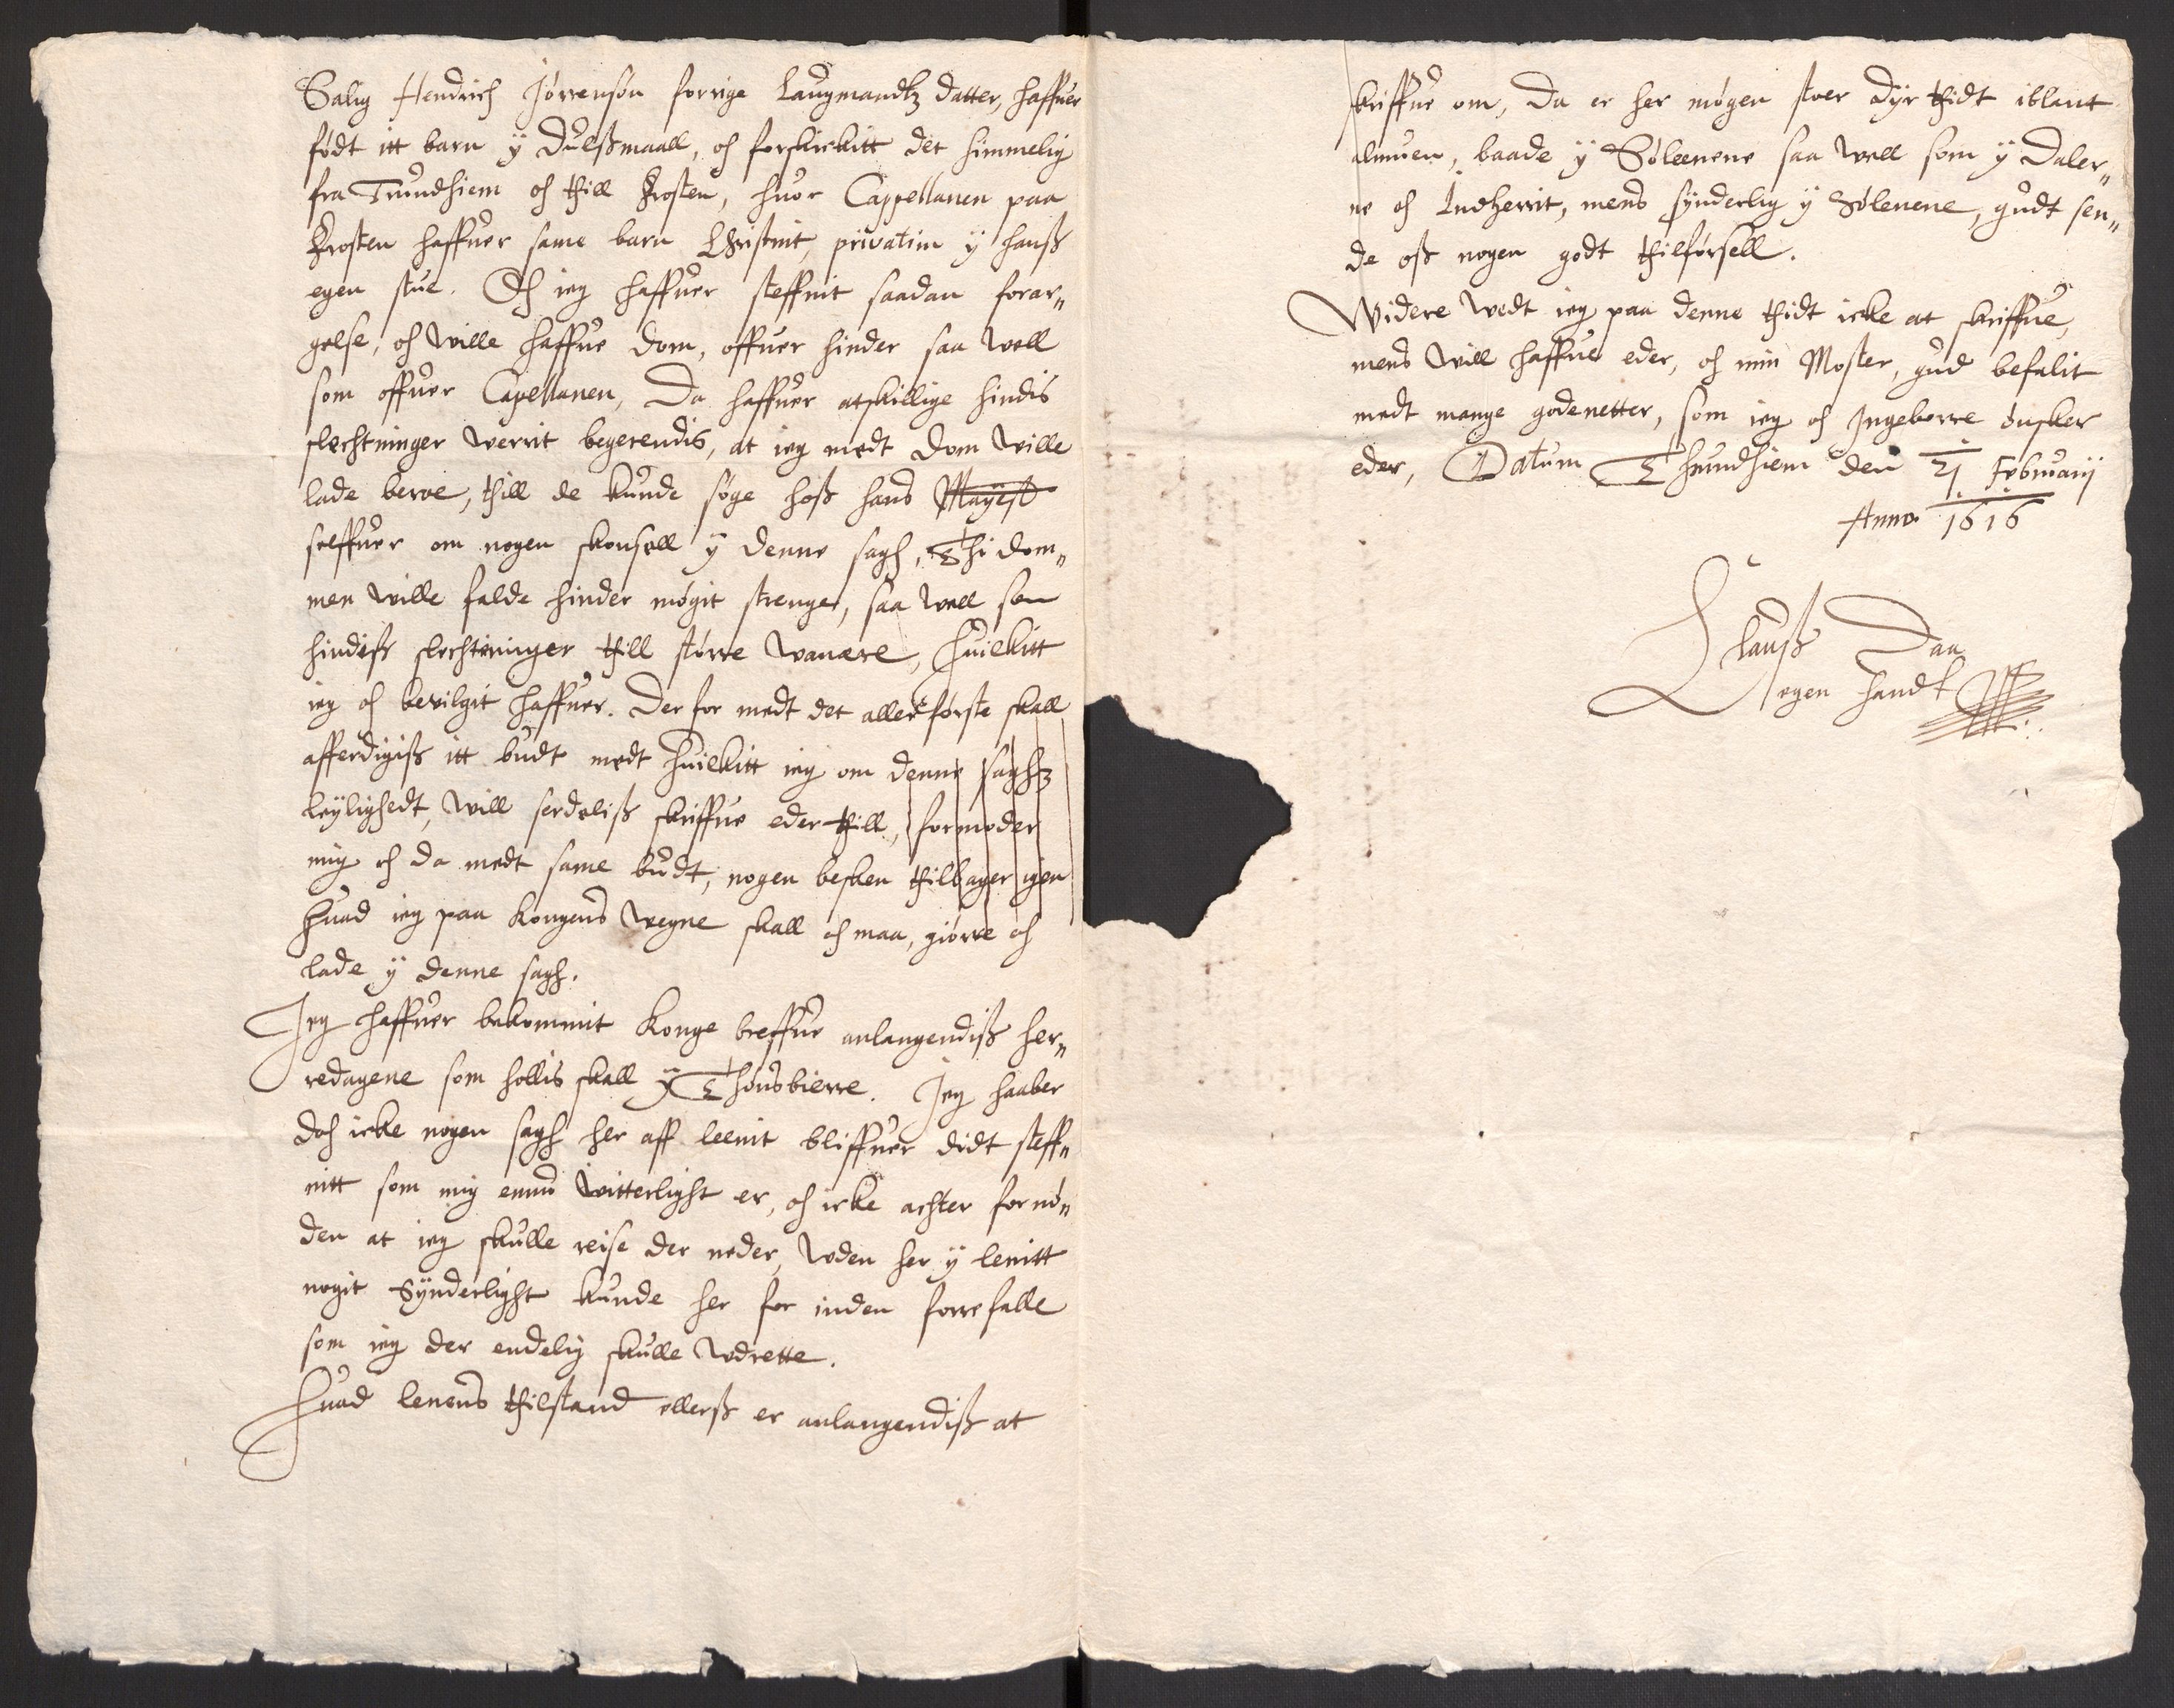 Salig Hendrich Jørrensøn forrige Laugmandtz datter, haffuer
født itt barn ÿ Dulßmaall, och forskickitt det himmelig
fra Trundhiem och thill Frosten, huor Cappellanen paa
Frosten haffuer same barn Christnit, privatim ÿ hanß
egen stue. Och ieg haffuer steffnit saadan forar„
gelse, och wille haffue dom, offuer hinder saa well
som offuer Capellanen, Da haffuer atskillige hindis
slechtninger werrit begerendis, at ieg medt dom wille
lade beroe, thill de kunde søge hoß hans Mayest
selffuer om nogen skonsell ÿ denne sagh, Thi dom„
men wille falde hinder møgit strenge, saa well som
hindeß slechtninger thill større wanære, huilkitt
ieg och bevilgit haffuer. Der for medt det allerførste skall
afferdigiß itt budt medt huilkitt ieg om denne saghz
leyligheedt, will serdeliß skriffue eder thill, formoder
mig och da medt same budt, nogen besken thillbager igen
huad ieg paa Kongens wegne skall och maa, giørre och
lade ÿ denne sagh.
Jeg haffuer bekommit Konge breffue anlangendiß her„
redagene som hollis skall ÿ Thønsbierre. Jeg haaber
doch icke nogen sagh her aff leenit bliffuer didt steff„
nitt som mig ennu witterlight er, och icke achter fornø„
den at ieg skulle reise der neder, wden her ÿ lenitt
nogit Synderlight kunde her for inden forrefalle
som ieg der endelig skulle wdrette.
Huad lenens thilstand ellerß er anlangendiß at
skriffue om, Da er her møgen stoer dyr thidt iblant
almuen, baade ÿ Søleenene saa well som ÿ daler„
ne och Indherrit, mens synderlig ÿ Sølenene, gudt sen„
de oß nogen godt thilførsell.
Widere wedt ieg paa denne thidt icke at skriffue,
mens will haffue eder, och min Moster, gud befalit
medt mange gode netter, som ieg och Ingeborre ønsker
eder, Datum Thrundhiem den 21 Februarij
Anno 1616
Clauß Daa
egen handt